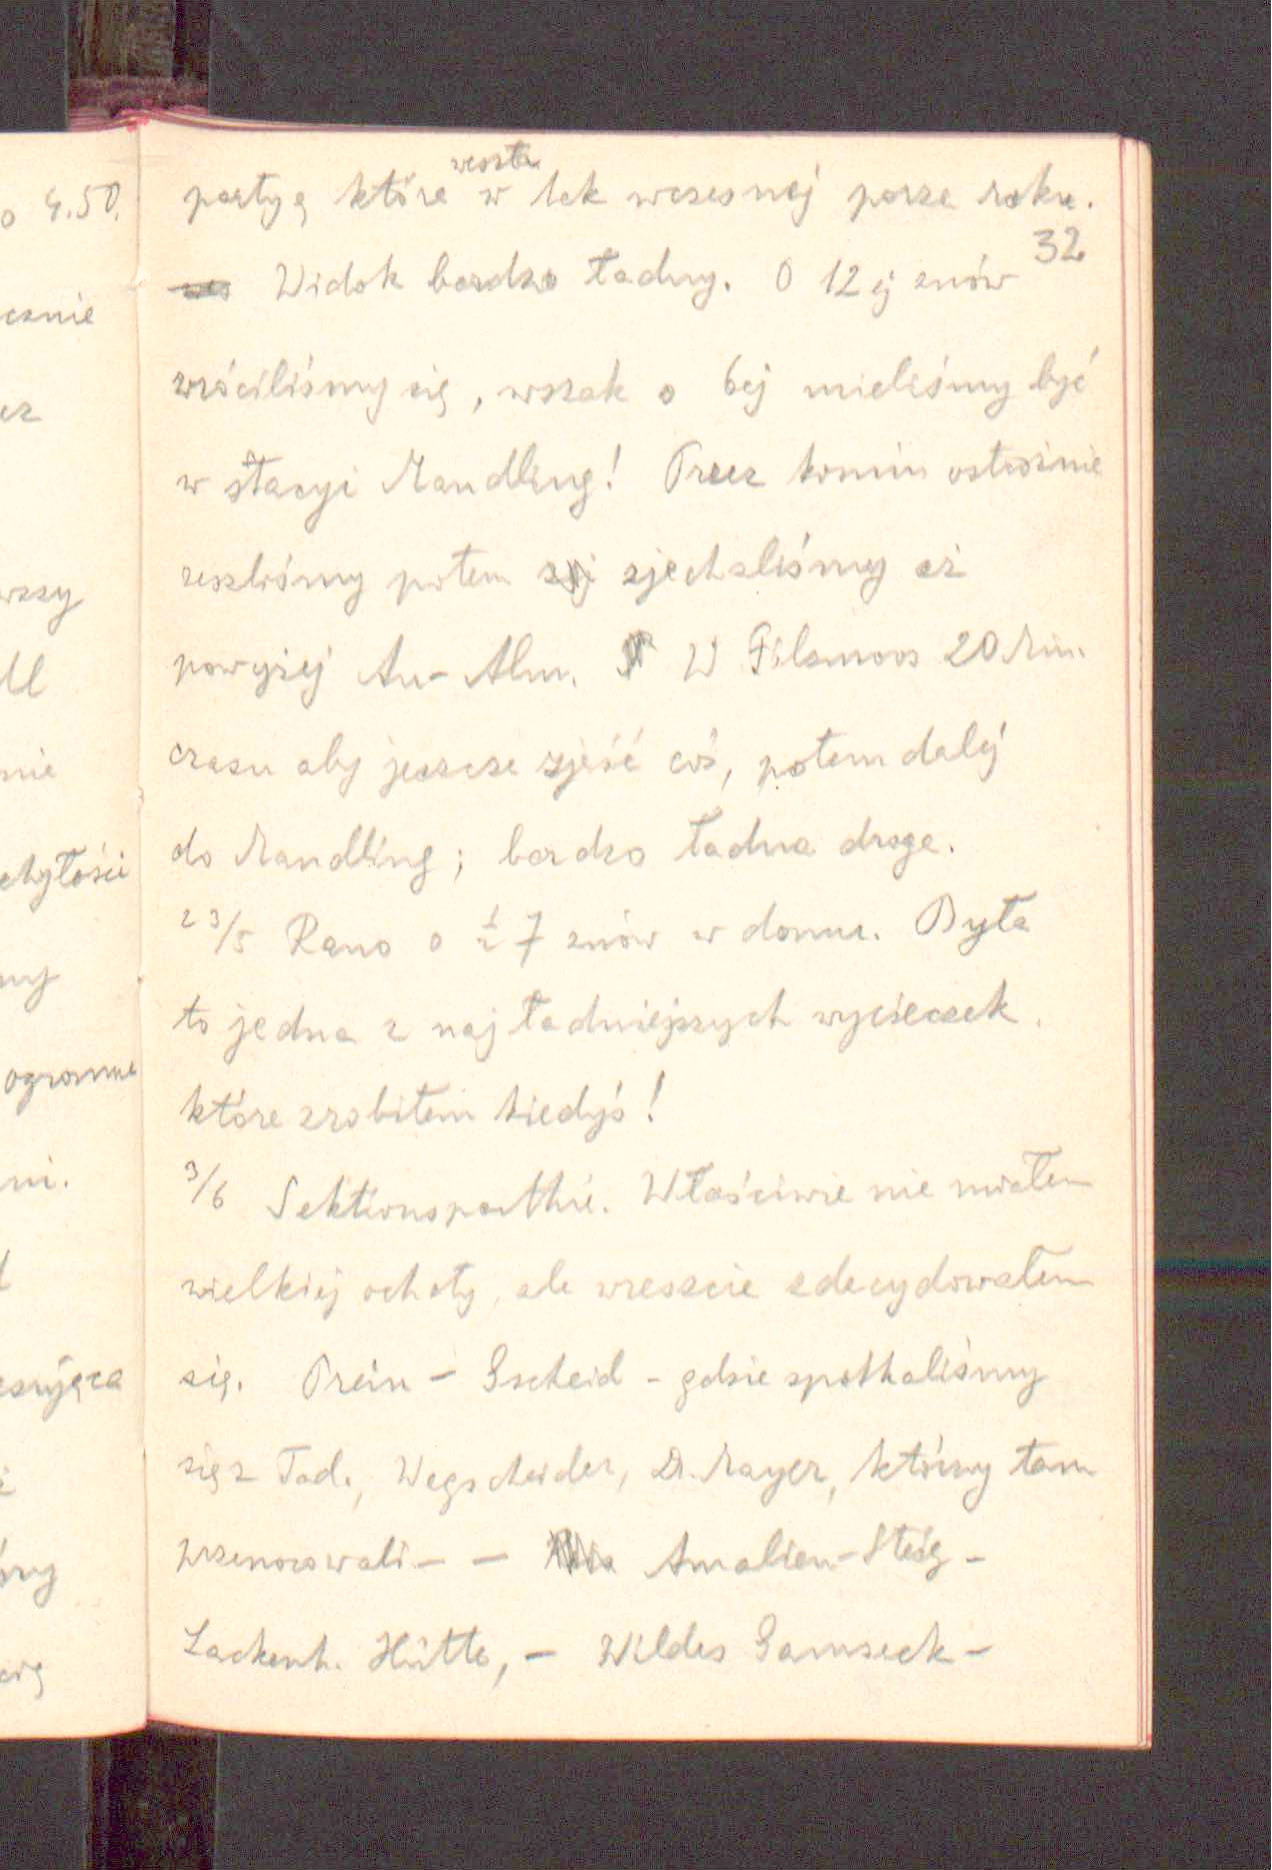 partyą które weszła w tak wczesnej porze roku.
32
Widok bardzo ładny. O 12 ej znów
wróciliśmy się, wszak o 6ej mieliśmy być
w stacyi Mandling! Przez komin ostrożnie
zeszliśmy potem zjechaliśmy aż
powyżej Au-Alm. W Filzmoos 20 Min.
czasu aby jeszcze zjeść coś, potem dalej
do Mandling; bardzo ładna droga.
23/5 Rano o ½ 7 znów w domu. Była
to jedna z najładniejszych wycieczek
które zrobiłem kiedyś!
3/6 Sektionsparthie. Właściwie nie miałem
wielkiej ochoty, ale wreszcie zdecydowałem
się. Prein - Gscheid - gdzie spotkaliśmy
się z Tad., Wegscheider, Dr. Mayer, którzy tam
przenocowali - - Amalien-Steig -
Lackenh. Hütte, - Wildes Gamseck -
o 4.50.
cznie
wszy
nie
chyłości
my
ogromne
ni.